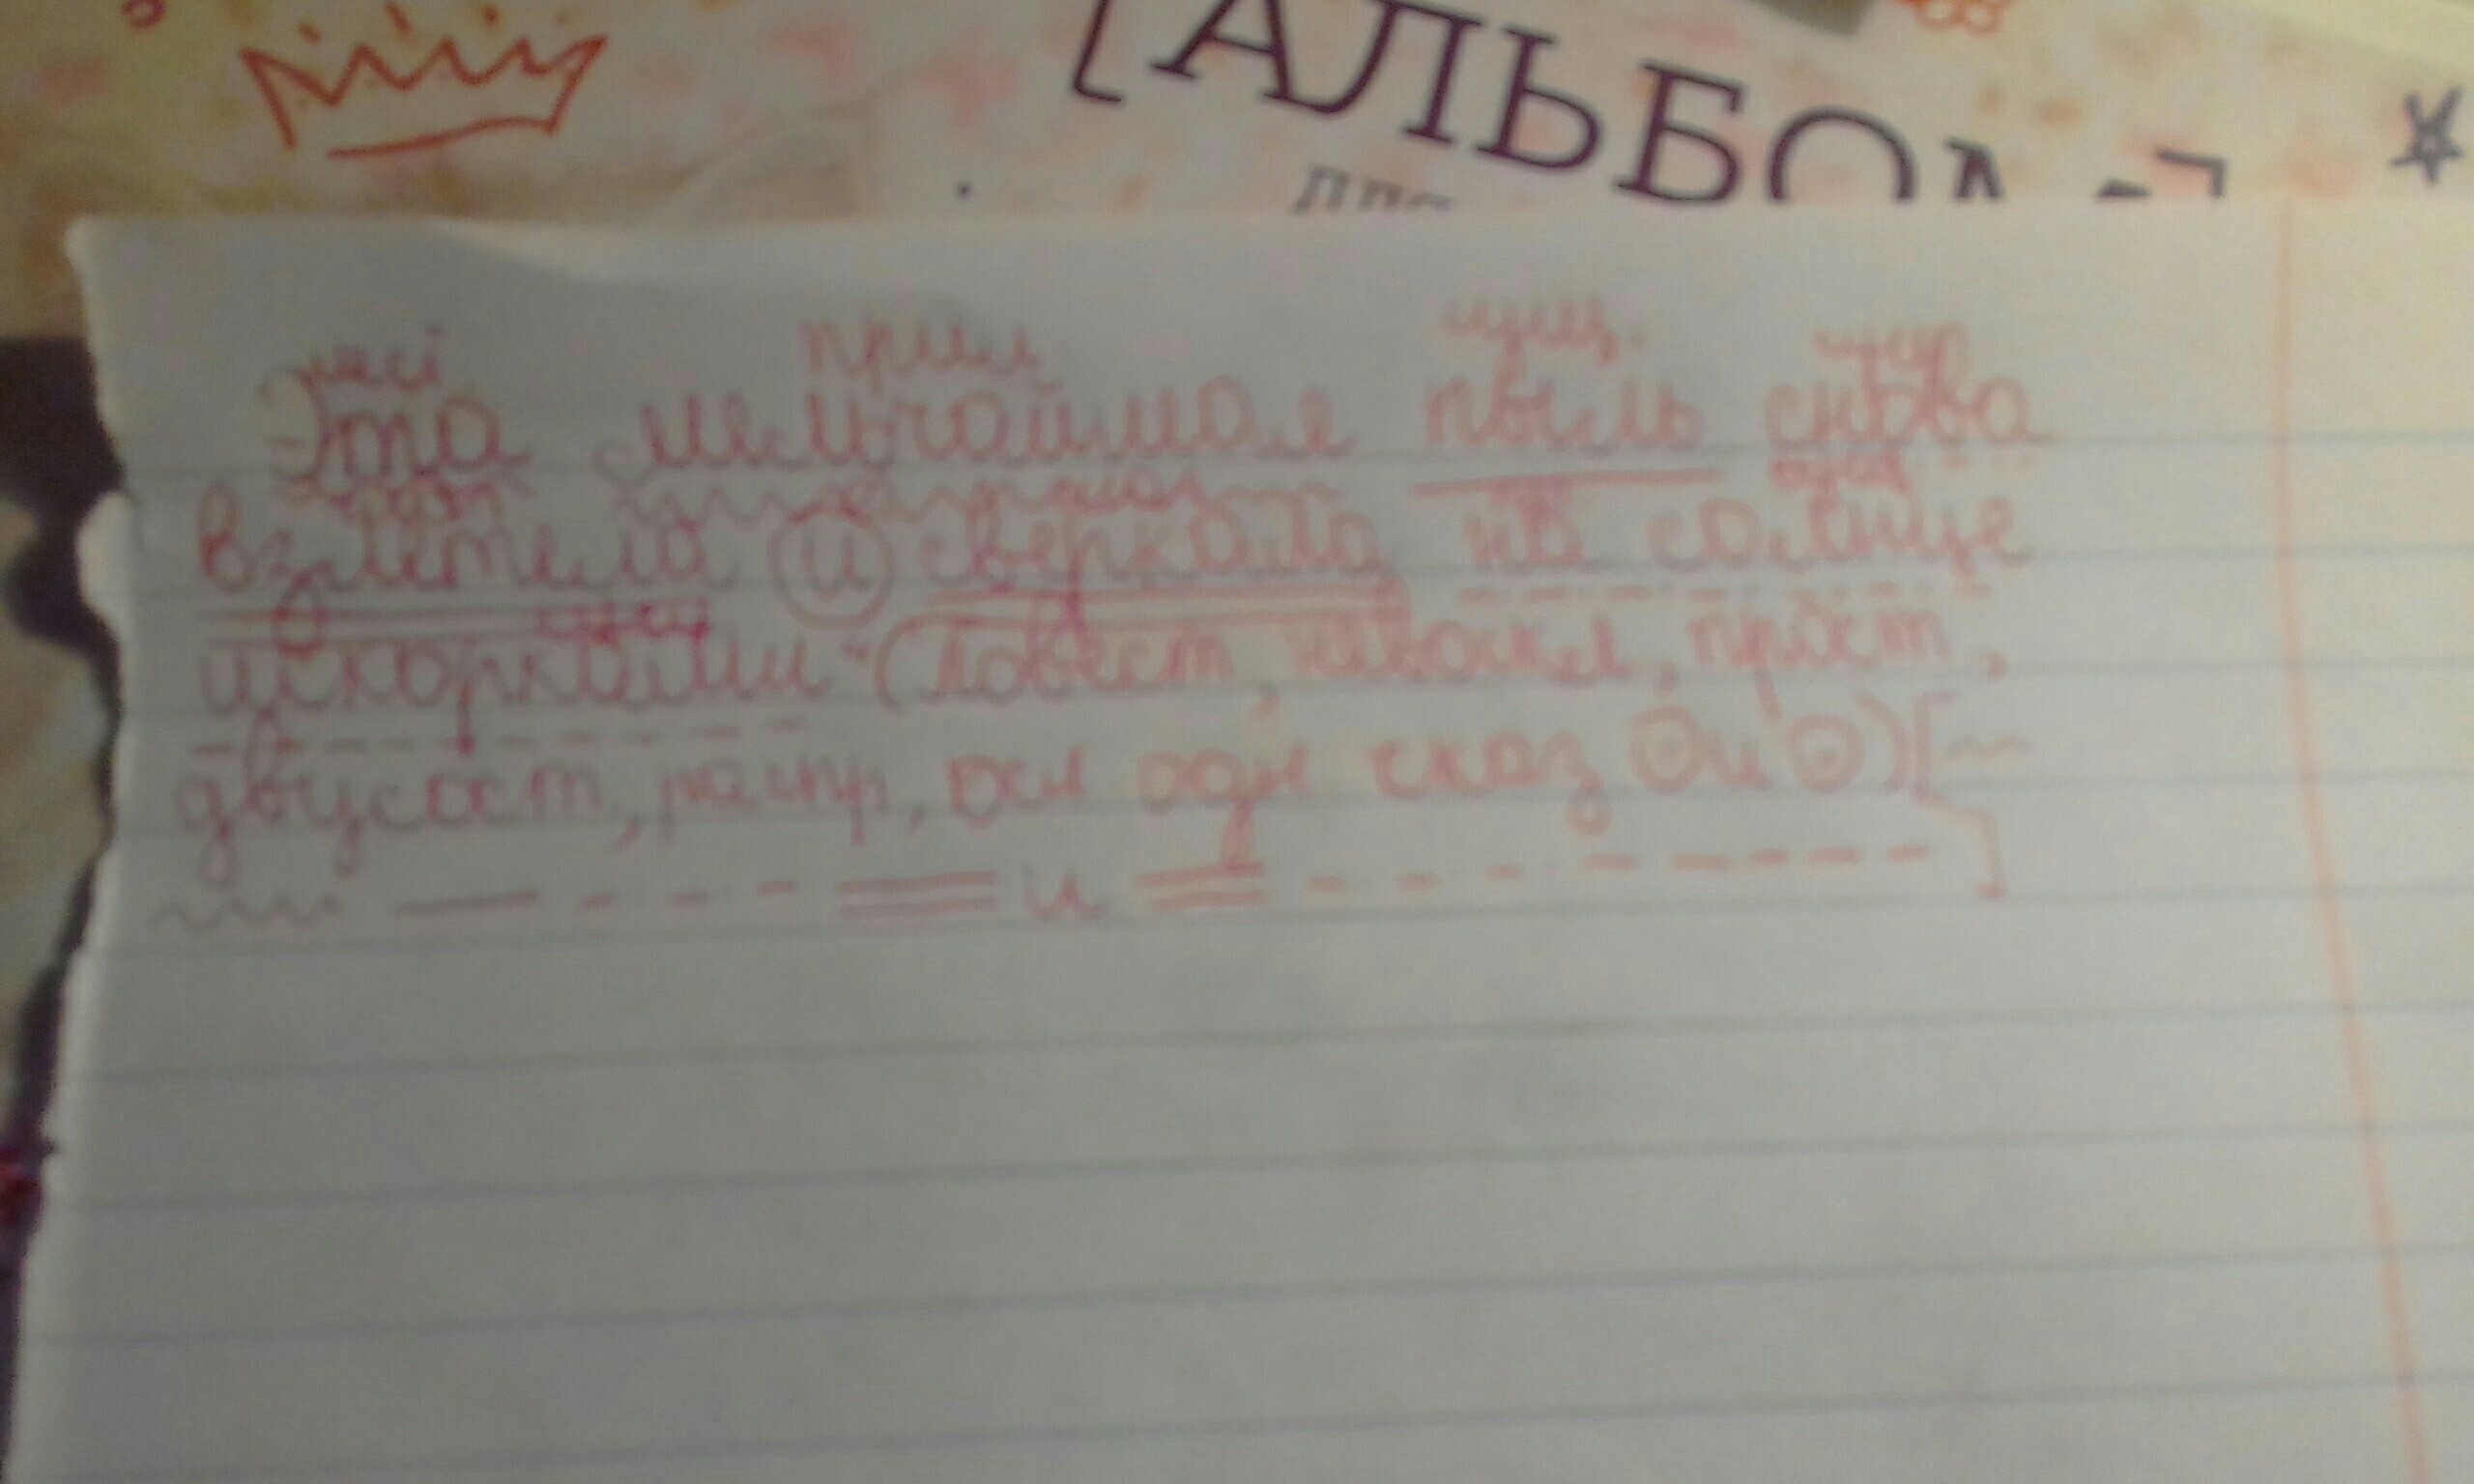 АЛЬБОМ
прил сущ.
Эта мельчайшая пыль снова
взлетела и сверкала на солнце
сущ
искорками (повест, невоскл, прост,
двусост, распр, осл одн сказ и [
и ]